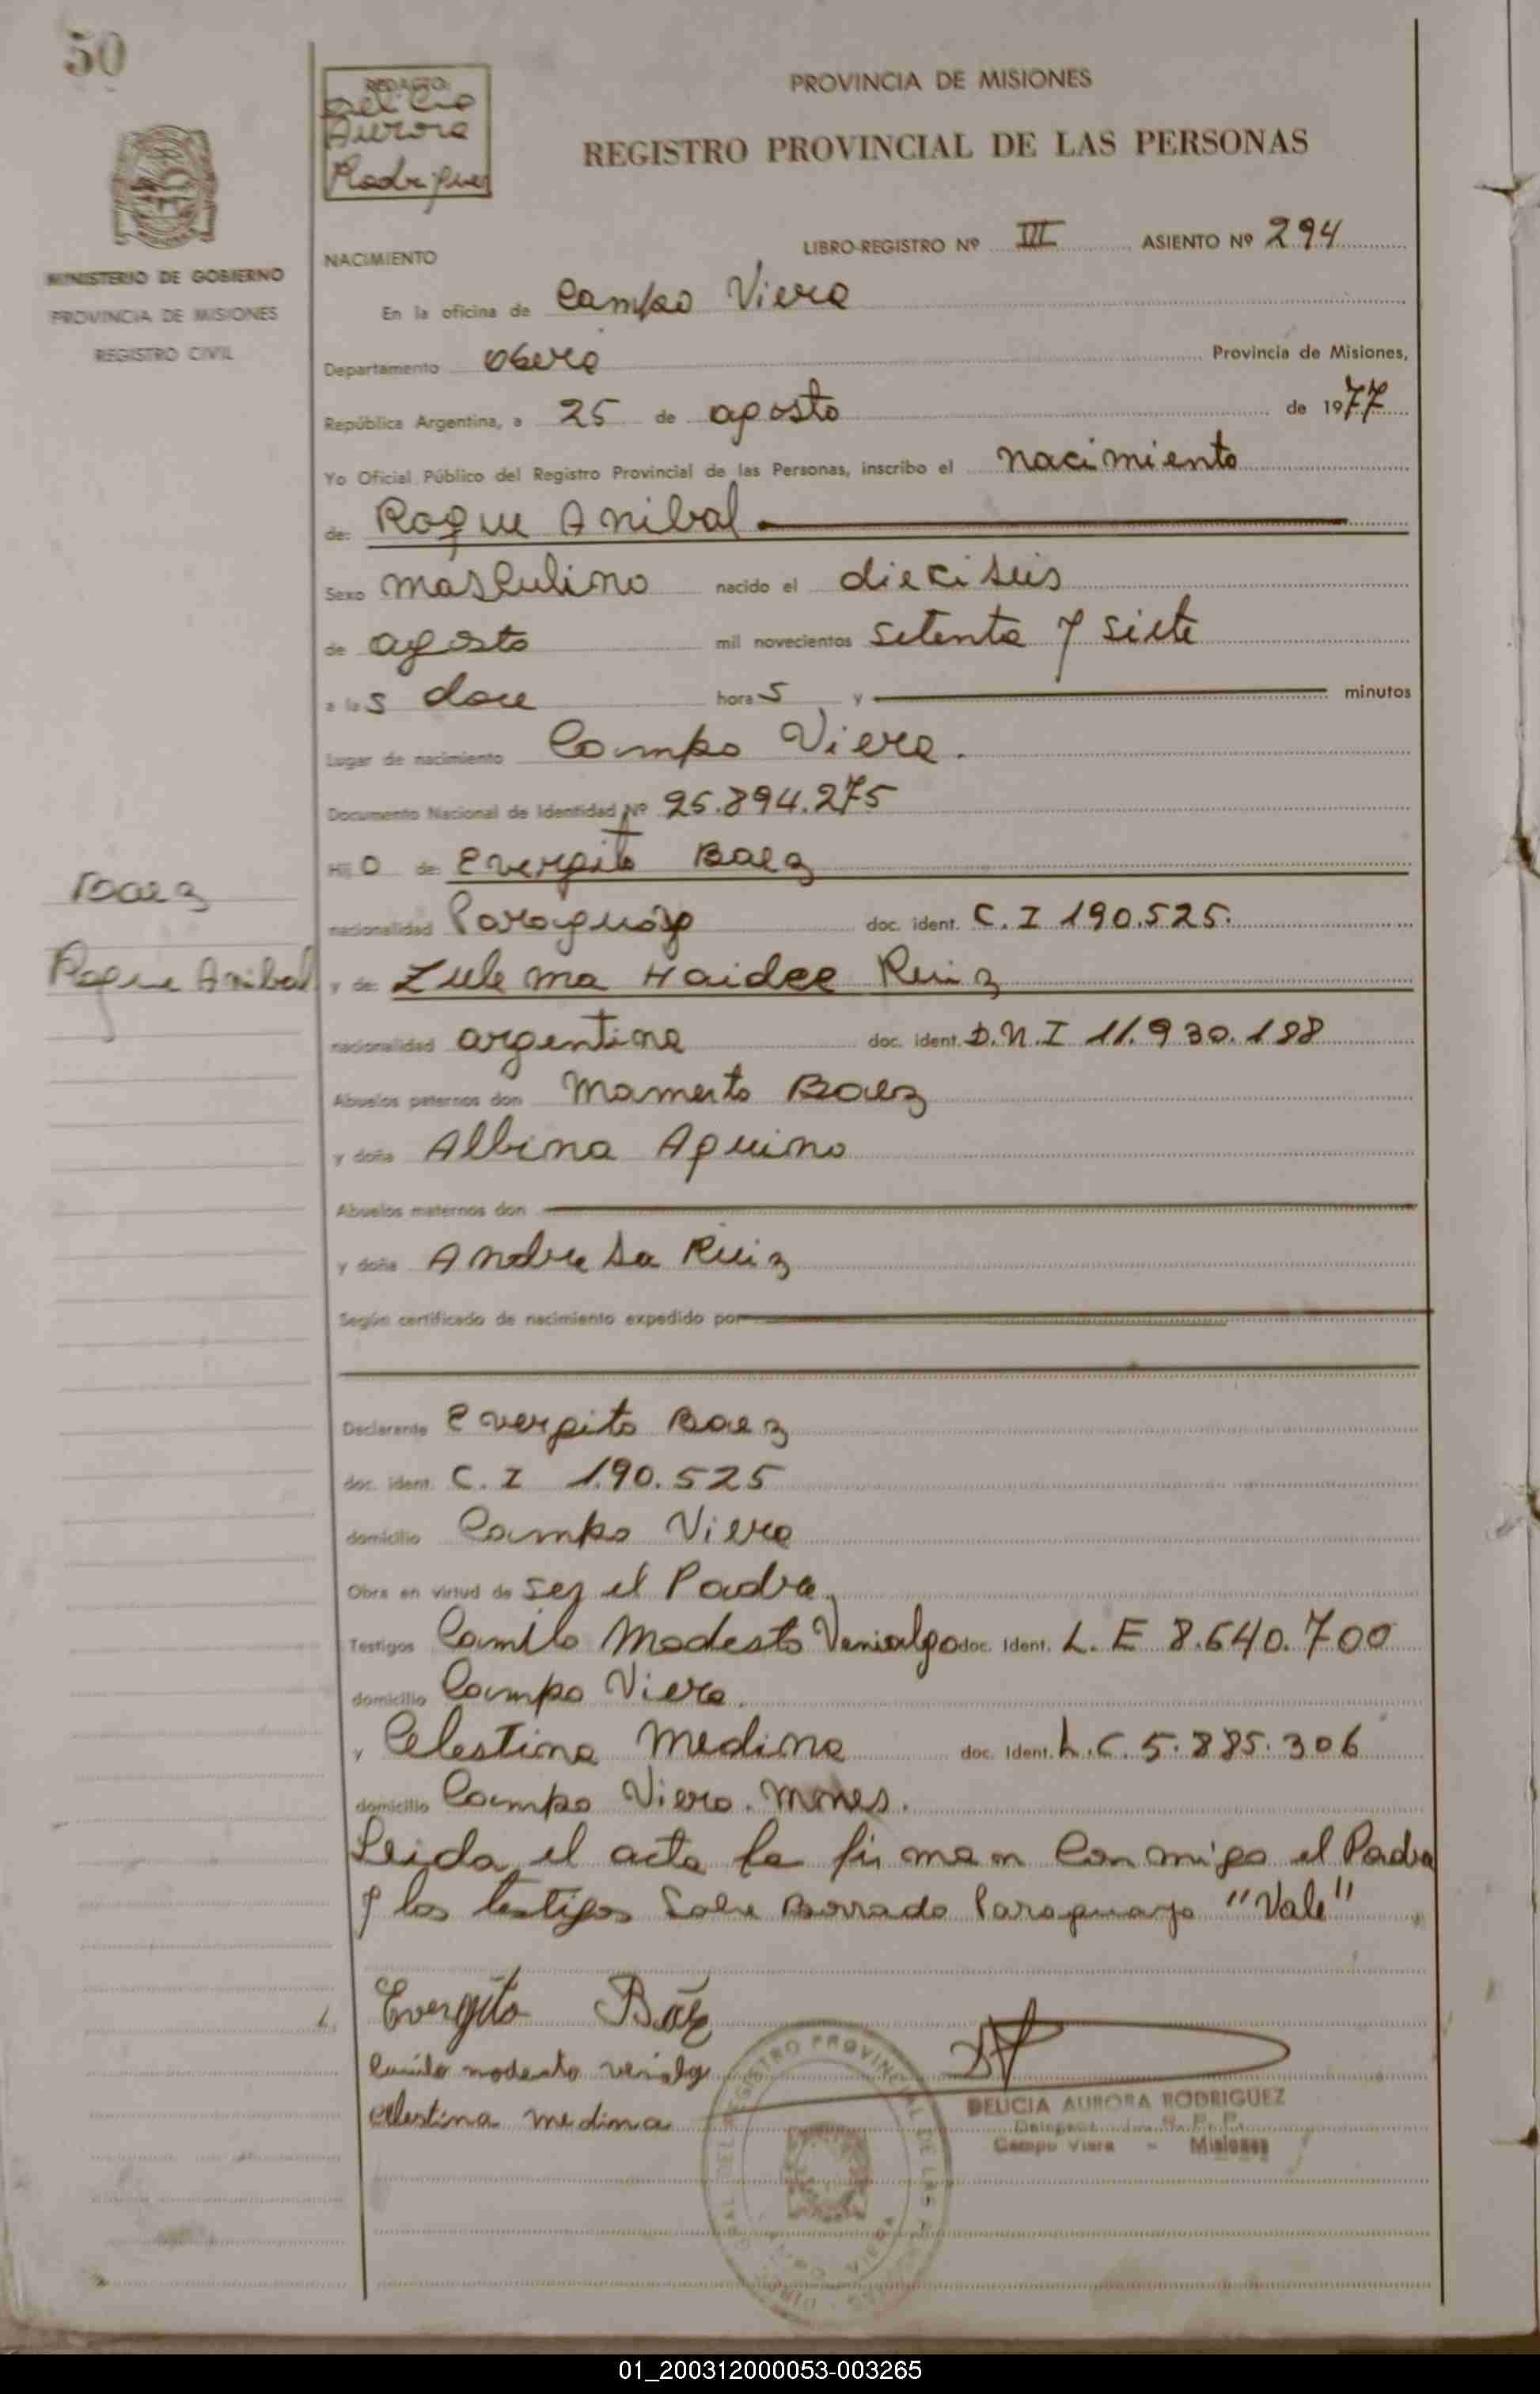 50
REDACTO:
Delicia
Aurora
Rodriguez
PROVINCIA DE MISIONES
REGISTRO PROVINCIAL DE LAS PERSONAS
MINISTERIO DE GOBIERNO
PROVINCIA DE MISIONES
REGISTRO CIVIL
LIBRO-REGISTRO Nº III ASIENTO Nº 294
NACIMIENTO
En la oficina de Campo Viera
Departamento Obera Provincia de Misiones,
República Argentina, a 25 de agosto de 1977
Yo Oficial Público del Registro Provincial de las Personas, inscribo el nacimiento
de: Roque Anibal
Sexo masculino nacido el dieciseis
de agosto mil novecientos setenta y siete
a las doce horas y minutos
Lugar de nacimiento Campo Viera.
Documento Nacional de Identidad Nº 25.894.275
Hijo de: Evergito Baez
nacionalidad Paraguayo doc. ident. C. I 190.525.
Baez
Roque Anibal
y de: Zulema Haidee Ruiz
nacionalidad argentina doc. ident. D.N.I 11.930.188
Abuelos paternos don Mamerto Baez
y doña Albina Aquino
Abuelos maternos don
y doña Andresa Ruiz
Según certificado de nacimiento expedido por
Declarante Evergito Baez
doc. ident. C. I 190.525
domicilio Campo Viera
Obra en virtud de ser el Padre.
Testigos Camilo Modesto Venialgo doc. Ident. L. E 8.640.700
domicilio Campo Viera.
y Celestina Medina doc. Ident. L.C. 5.885.306
domicilio Campo Viera. Mnes.
Leida el acta la firman conmigo el Padre
y los testigos Sobre Borrado Paraguayo "Vale"
Evergito Báez
Camilo modesto venialgo
celestina medina
DELICIA AURORA RODRIGUEZ
Campo Viera - Misiones
01_200312000053-003265